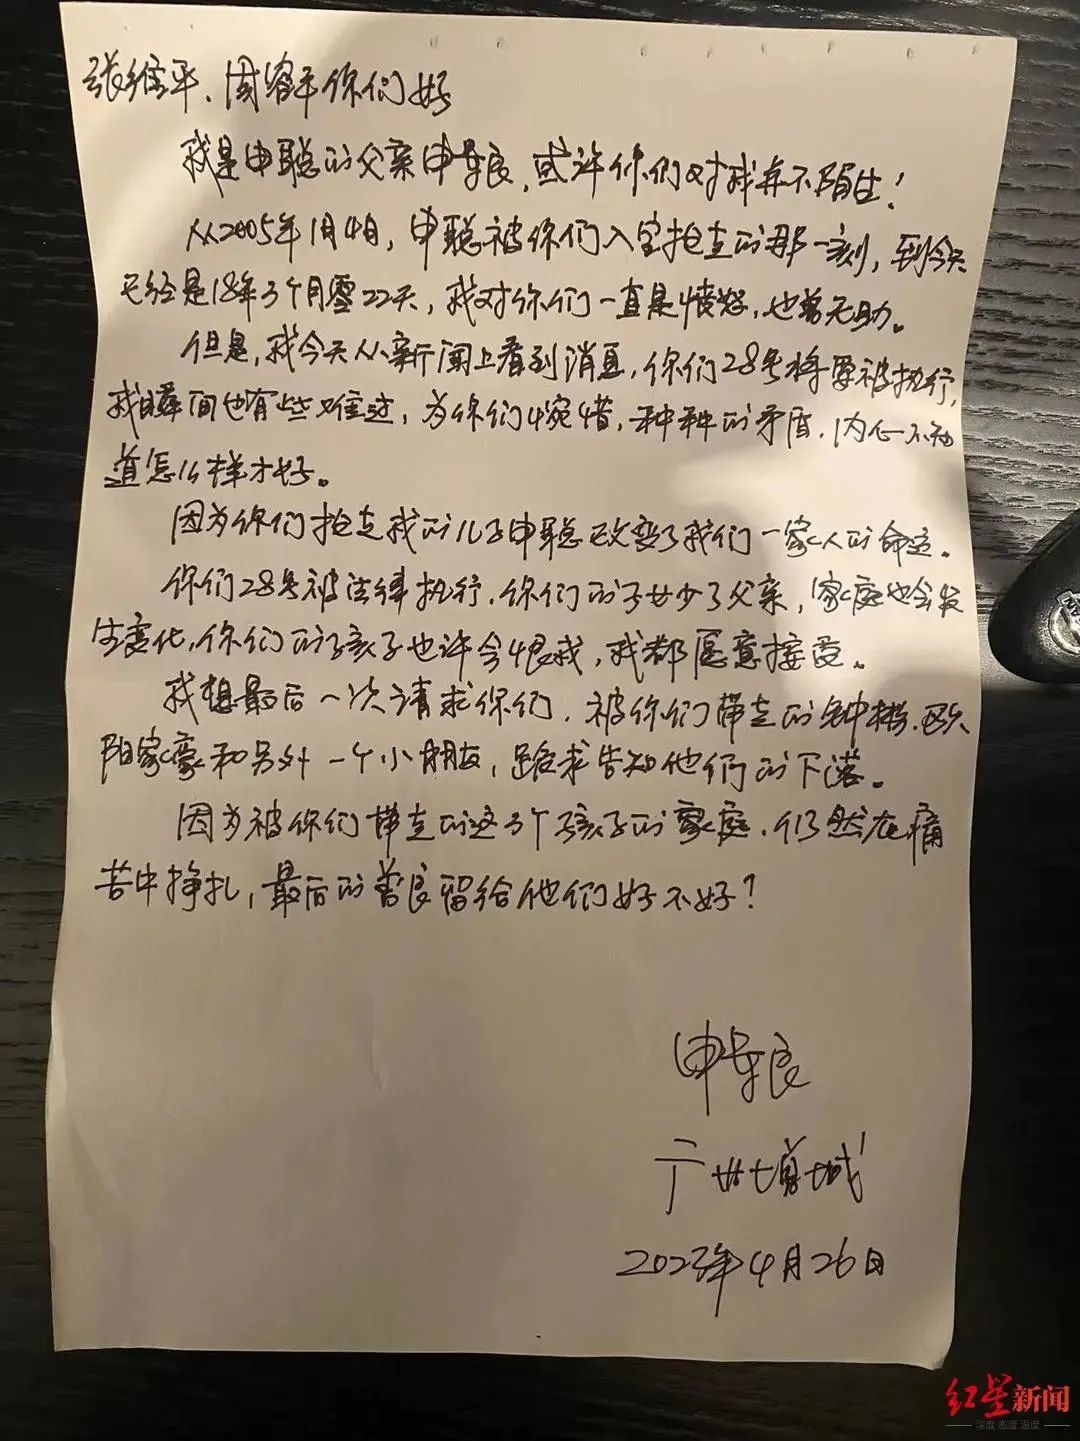 张维平、周容平你们好
我是申聪的父亲申军良，或许你们对我并不陌生！
从2005年1月4日，申聪被你们入室抢走的那一刻，到今天
已经是18年3个月零22天，我对你们一直是愤怒，也曾无助。
但是，我今天从新闻上看到消息，你们28号将要被执行，
我瞬间也有些难过，为你们惋惜，种种的矛盾，内心不知
道怎么样才好。
因为你们抢走我的儿子申聪改变了我们一家人的命运。
你们28号被法律执行，你们的子女少了父亲，家庭也会发
生变化，你们的孩子也许会恨我，我都愿意接受。
我想最后一次请求你们，被你们带走的钟彬、欧
阳家豪和另外一个小朋友，跪求告知他们的下落。
因为被你们带走的这3个孩子的家庭，仍然在痛
苦中挣扎，最后的善良留给他们好不好？
申军良
广州增城
2023年4月26日
红星新闻
深度 态度 温度